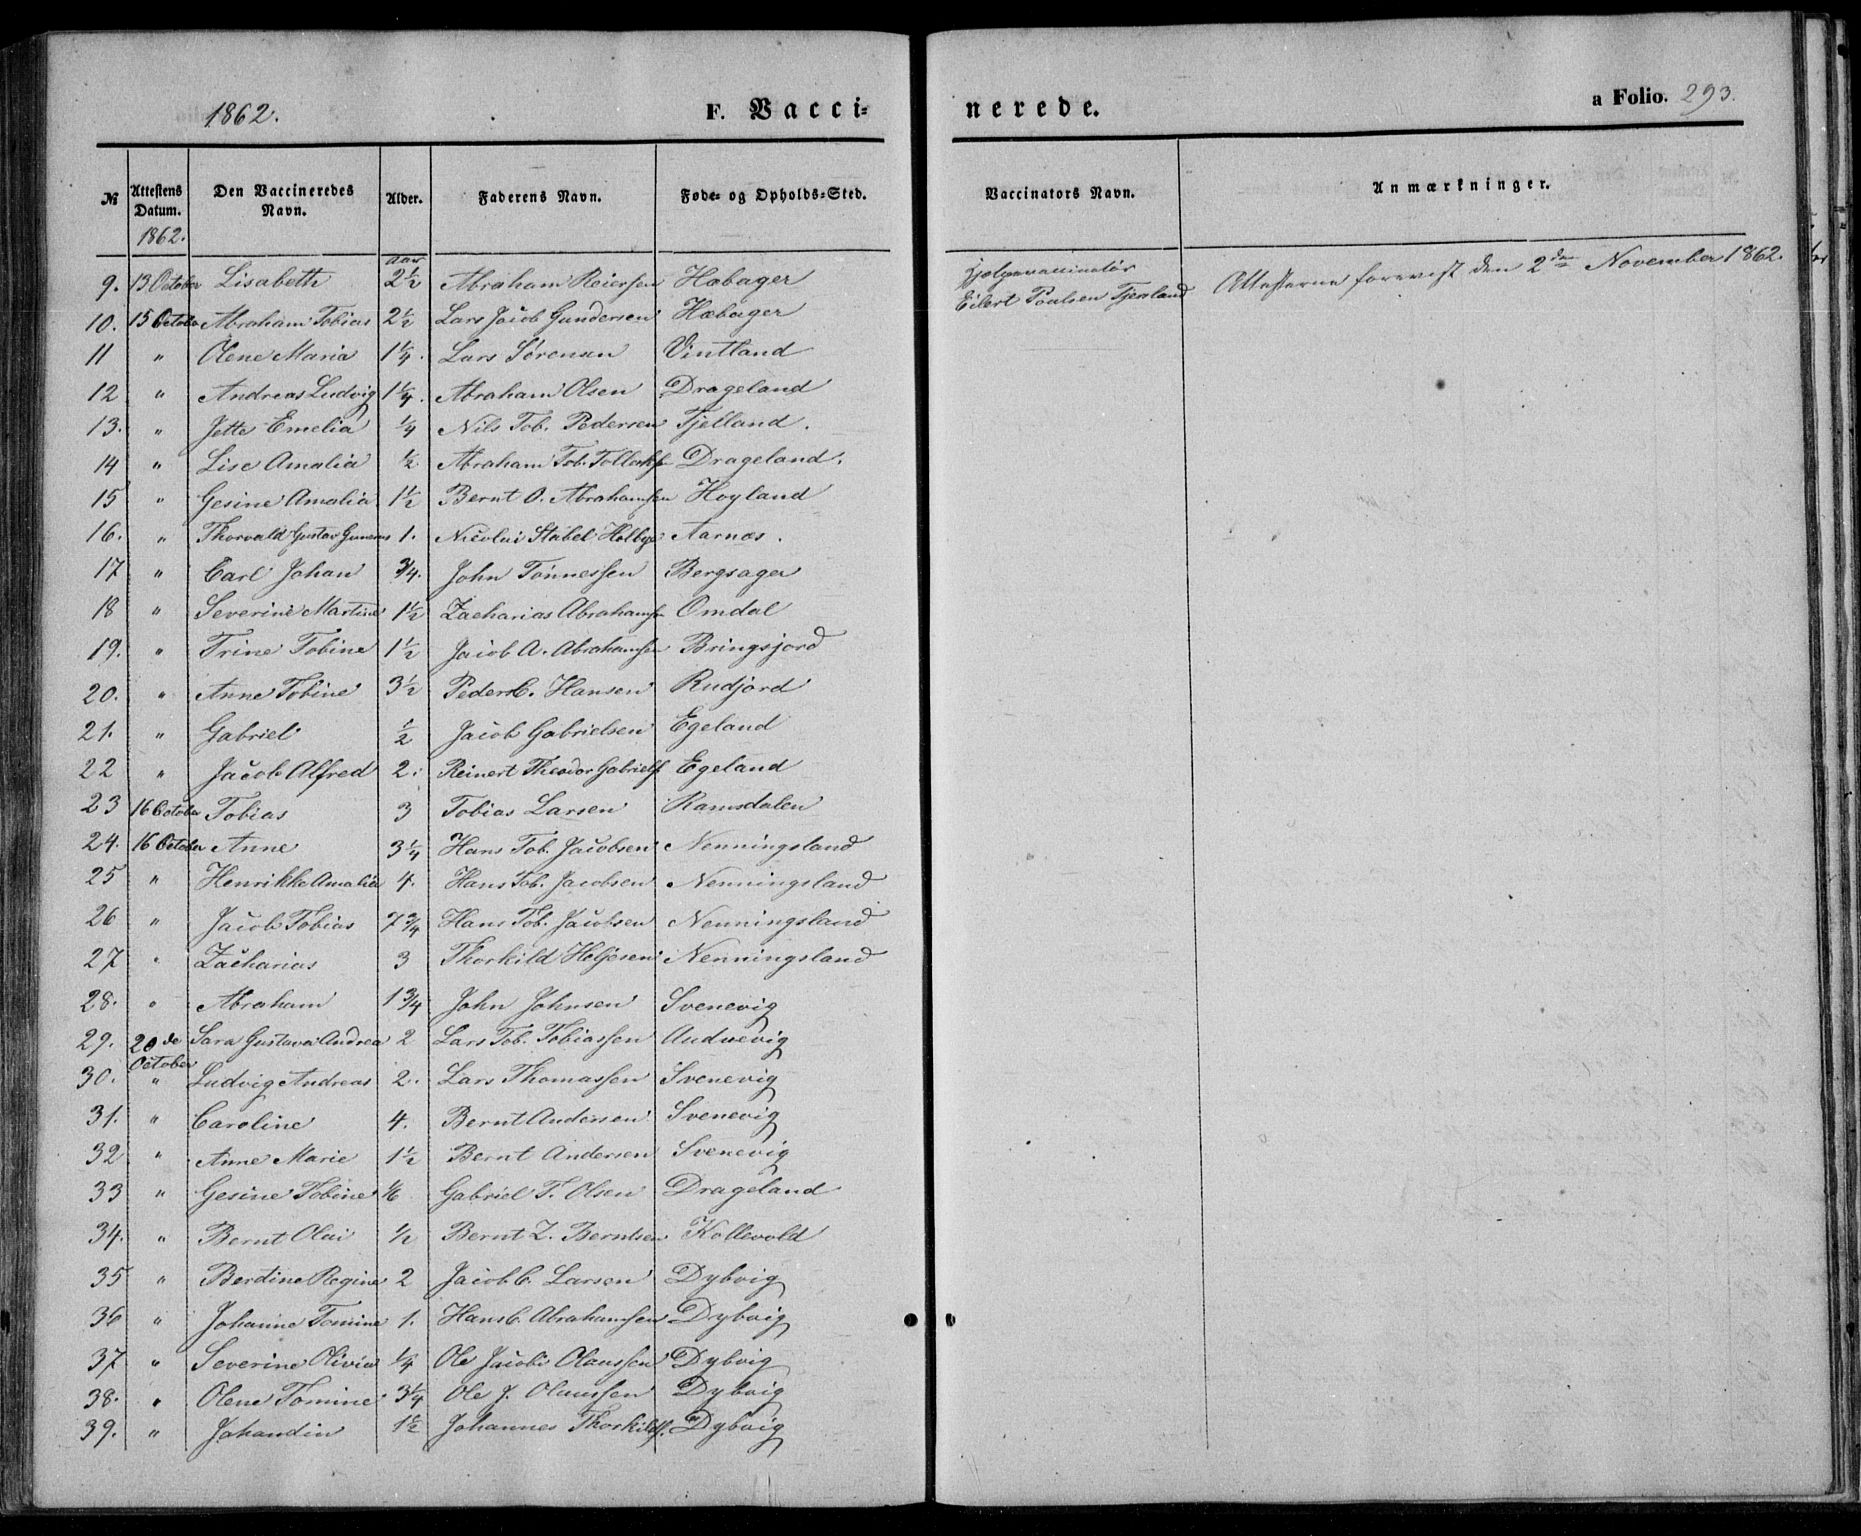 1862.
F. Vacci-
nerede.
a Folio. 293.
№ Attestens Datum. Den Vaccineredes Navn. Alder. Faderens Navn. Føde- og Opholds-Sted. Vaccinators Navn. Anmærkninger.
1862.
Aar
9. 13 October Lisabeth 2½ Abraham Reiersen Hæbager Hjelpevaccinatør Attesterne forevist den 2den November 1862.
Eilert Poulsen Tjersland
10. 15 October Abraham Tobias 2½ Lars Jacob Gundersen Hæbager
11 " Olene Maria 1¼. Lars Sørensen Vintland
12 " Andreas Ludvig 1¼. Abraham Olsen Drageland
13. " Jette Emelia ¼ Nils Tob. Pedersen Tjelland.
14 " Lise Amalia ½ Abraham Tob. Tollaksf Drageland.
15 " Gesine Amalia 1½ Bernt O. Abrahamsen Hoyland
16. " Thorvald Gustav 1. Nicolai Stabel Holbye Aarnæs.
17 " Carl Johan ¾. John Tønnessen Bergsager
18 " Severine Martine 1½ Zacharias Abrahamsen Omdal
19. " Trine Tobine 1½ Jacob A. Abrahamsen Bringsjord
20. " Anne Tobine 3½ Peder C. Hansen Rudjord
21. " Gabriel ½ Jacob Gabrielsen Egeland
22 " Jacob Alfred 2. Reinert Theodor Gabrielsf Egeland
23 16 October Tobias 3 Tobias Larsen Ramsdalen
24. 16 October Anne 3¼ Hans Tob. Jacobsen Nenningsland
25 " Henrikke Amalia 4. Hans Tob. Jacobsen Nenningsland
26 " Jacob Tobias 7¾ Hans Tob. Jacobsen Nenningsland
27 " Zacharias 3 Thorkild Heljesen Nenningsland
28. " Abraham 1¾ John Johnsen Svenevig
29. 20de October Sara Gustava Andrea 2 Lars Tob. Tobiassen Audnevig
30. " Ludvig Andreas 2. Lars Thomassen Svenevig
31. " Caroline 4. Bernt Andersen Svenevig
32 " Anne Marie 1½ Bernt Andersen Svenevig
33 " Gesine Tobine 1/6 Gabriel T. Olsen Drageland
34. " Bernt Olai ½ Bernt Z. Berntsen Kollevold
35 " Berdine Regine 2 Jacob C. Larsen Dybvig
36 " Johanne Tomine 1. Hans C. Abrahamsen Dybvig
37 " Severine Olivia ¼ Ole Jacob Olaussen Dybvig
38. " Olene Tomine 3¼ Ole J. Olaussen Dybvig
39. " Johandin 1½ Johannes Thorkilsf. Dybvig